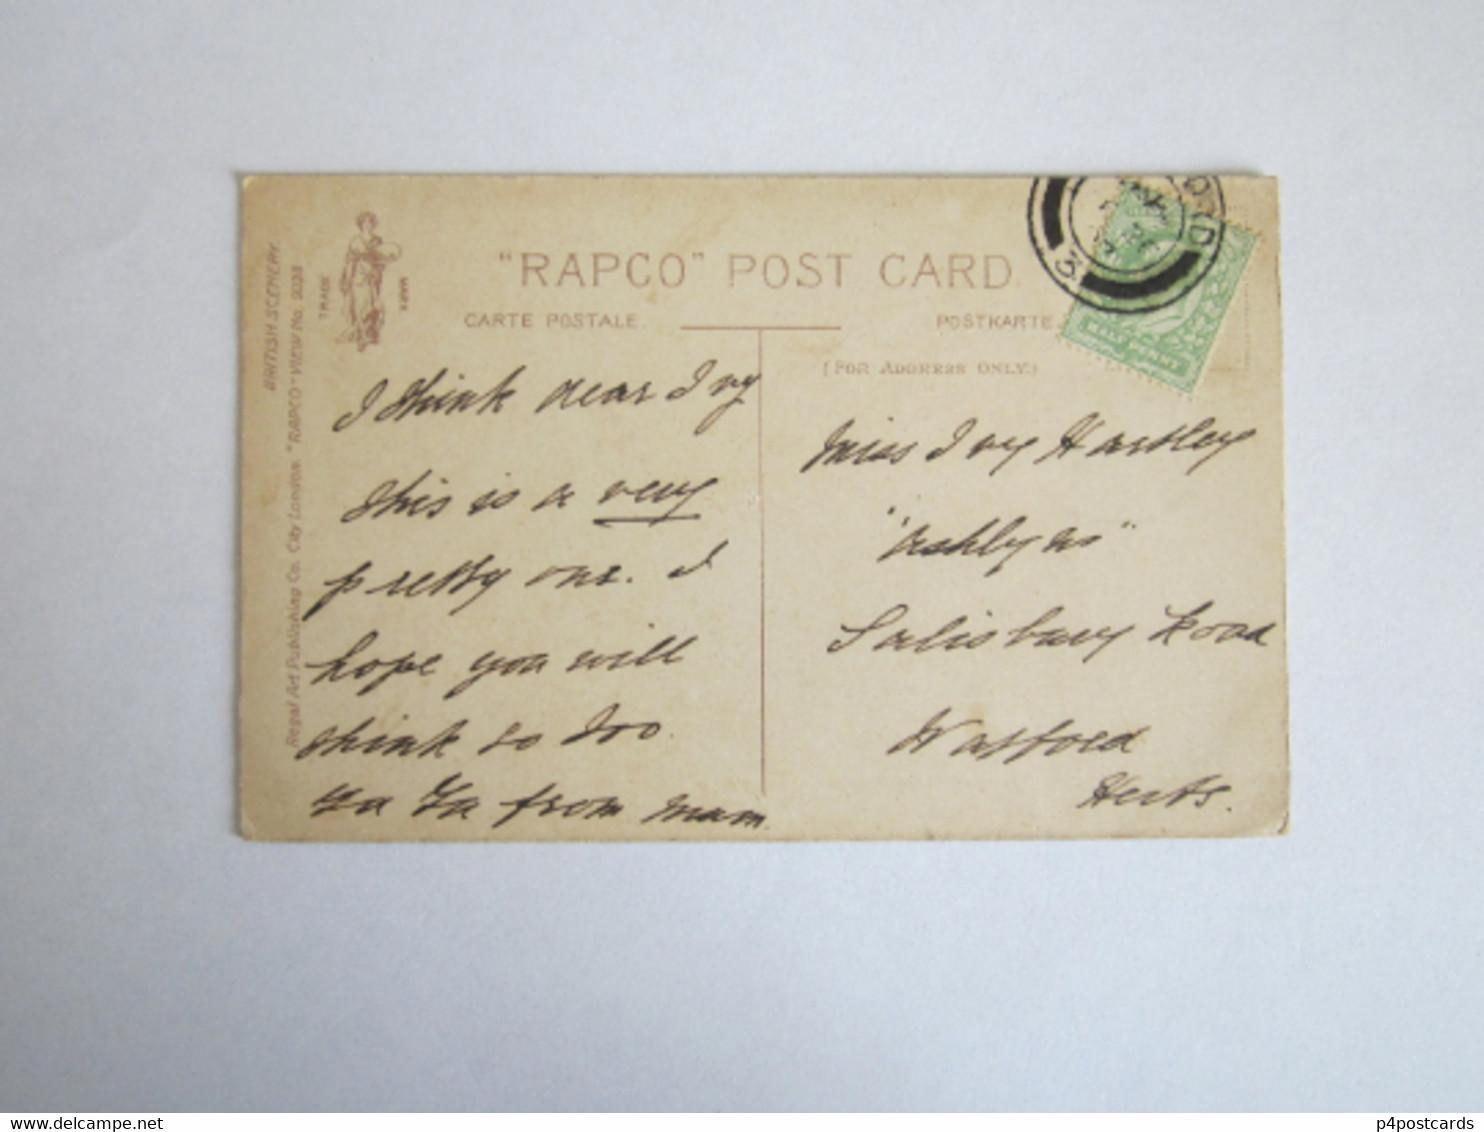 BRITISH SCENERY
Regal Art Publishing Co. City London. "RAPCO" VIEW No.
TRADE MARK
"RAPCO" POST CARD
CARTE POSTALE.
POSTKARTE
(FOR ADDRESS ONLY.)
HALF PENNY
3
I think dear Ivy
this is a very
pretty one. I
hope you will
think so too.
Ta Ta from Mam.
Miss Ivy Hartley
Salisbury Road
Watford
Herts.
delcampe.net
p4postcards